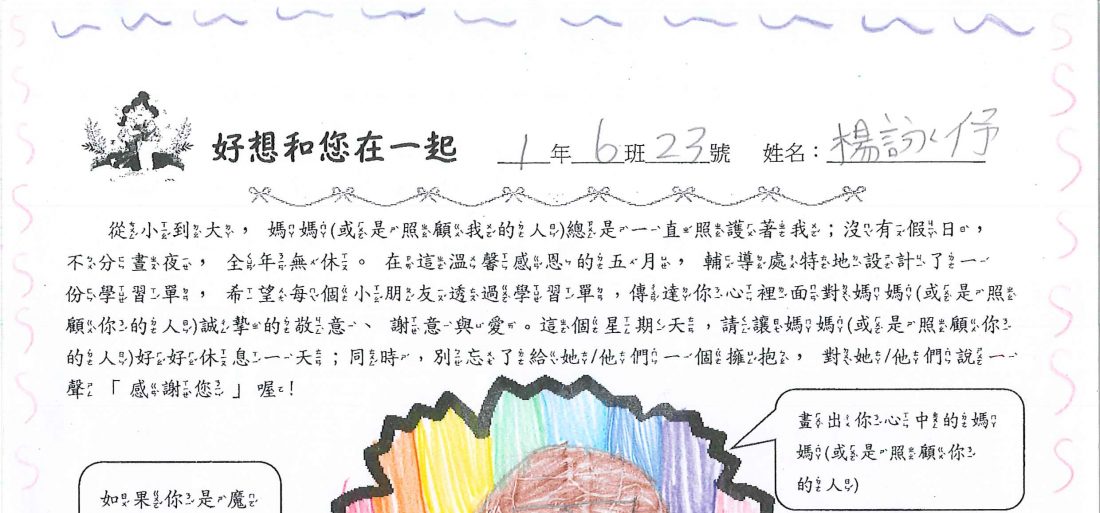 好想和您在一起 1年6班23號 姓名：楊詠伃
從小到大，媽媽(或是照顧我的人)總是一直照護著我；沒有假日，
不分晝夜，全年無休。在這溫馨感恩的五月，輔導處特地設計了一
份學習單，希望每個小朋友透過學習單，傳達你心裡面對媽媽(或是照
顧你的人)誠摯的敬意、謝意與愛。這個星期天，請讓媽媽(或是照顧你
的人)好好休息一天；同時，別忘了給她/他們一個擁抱，對她/他們說一
聲「感謝您」喔!
畫出你心中的媽
媽(或是照顧你
的人)
如果你是魔